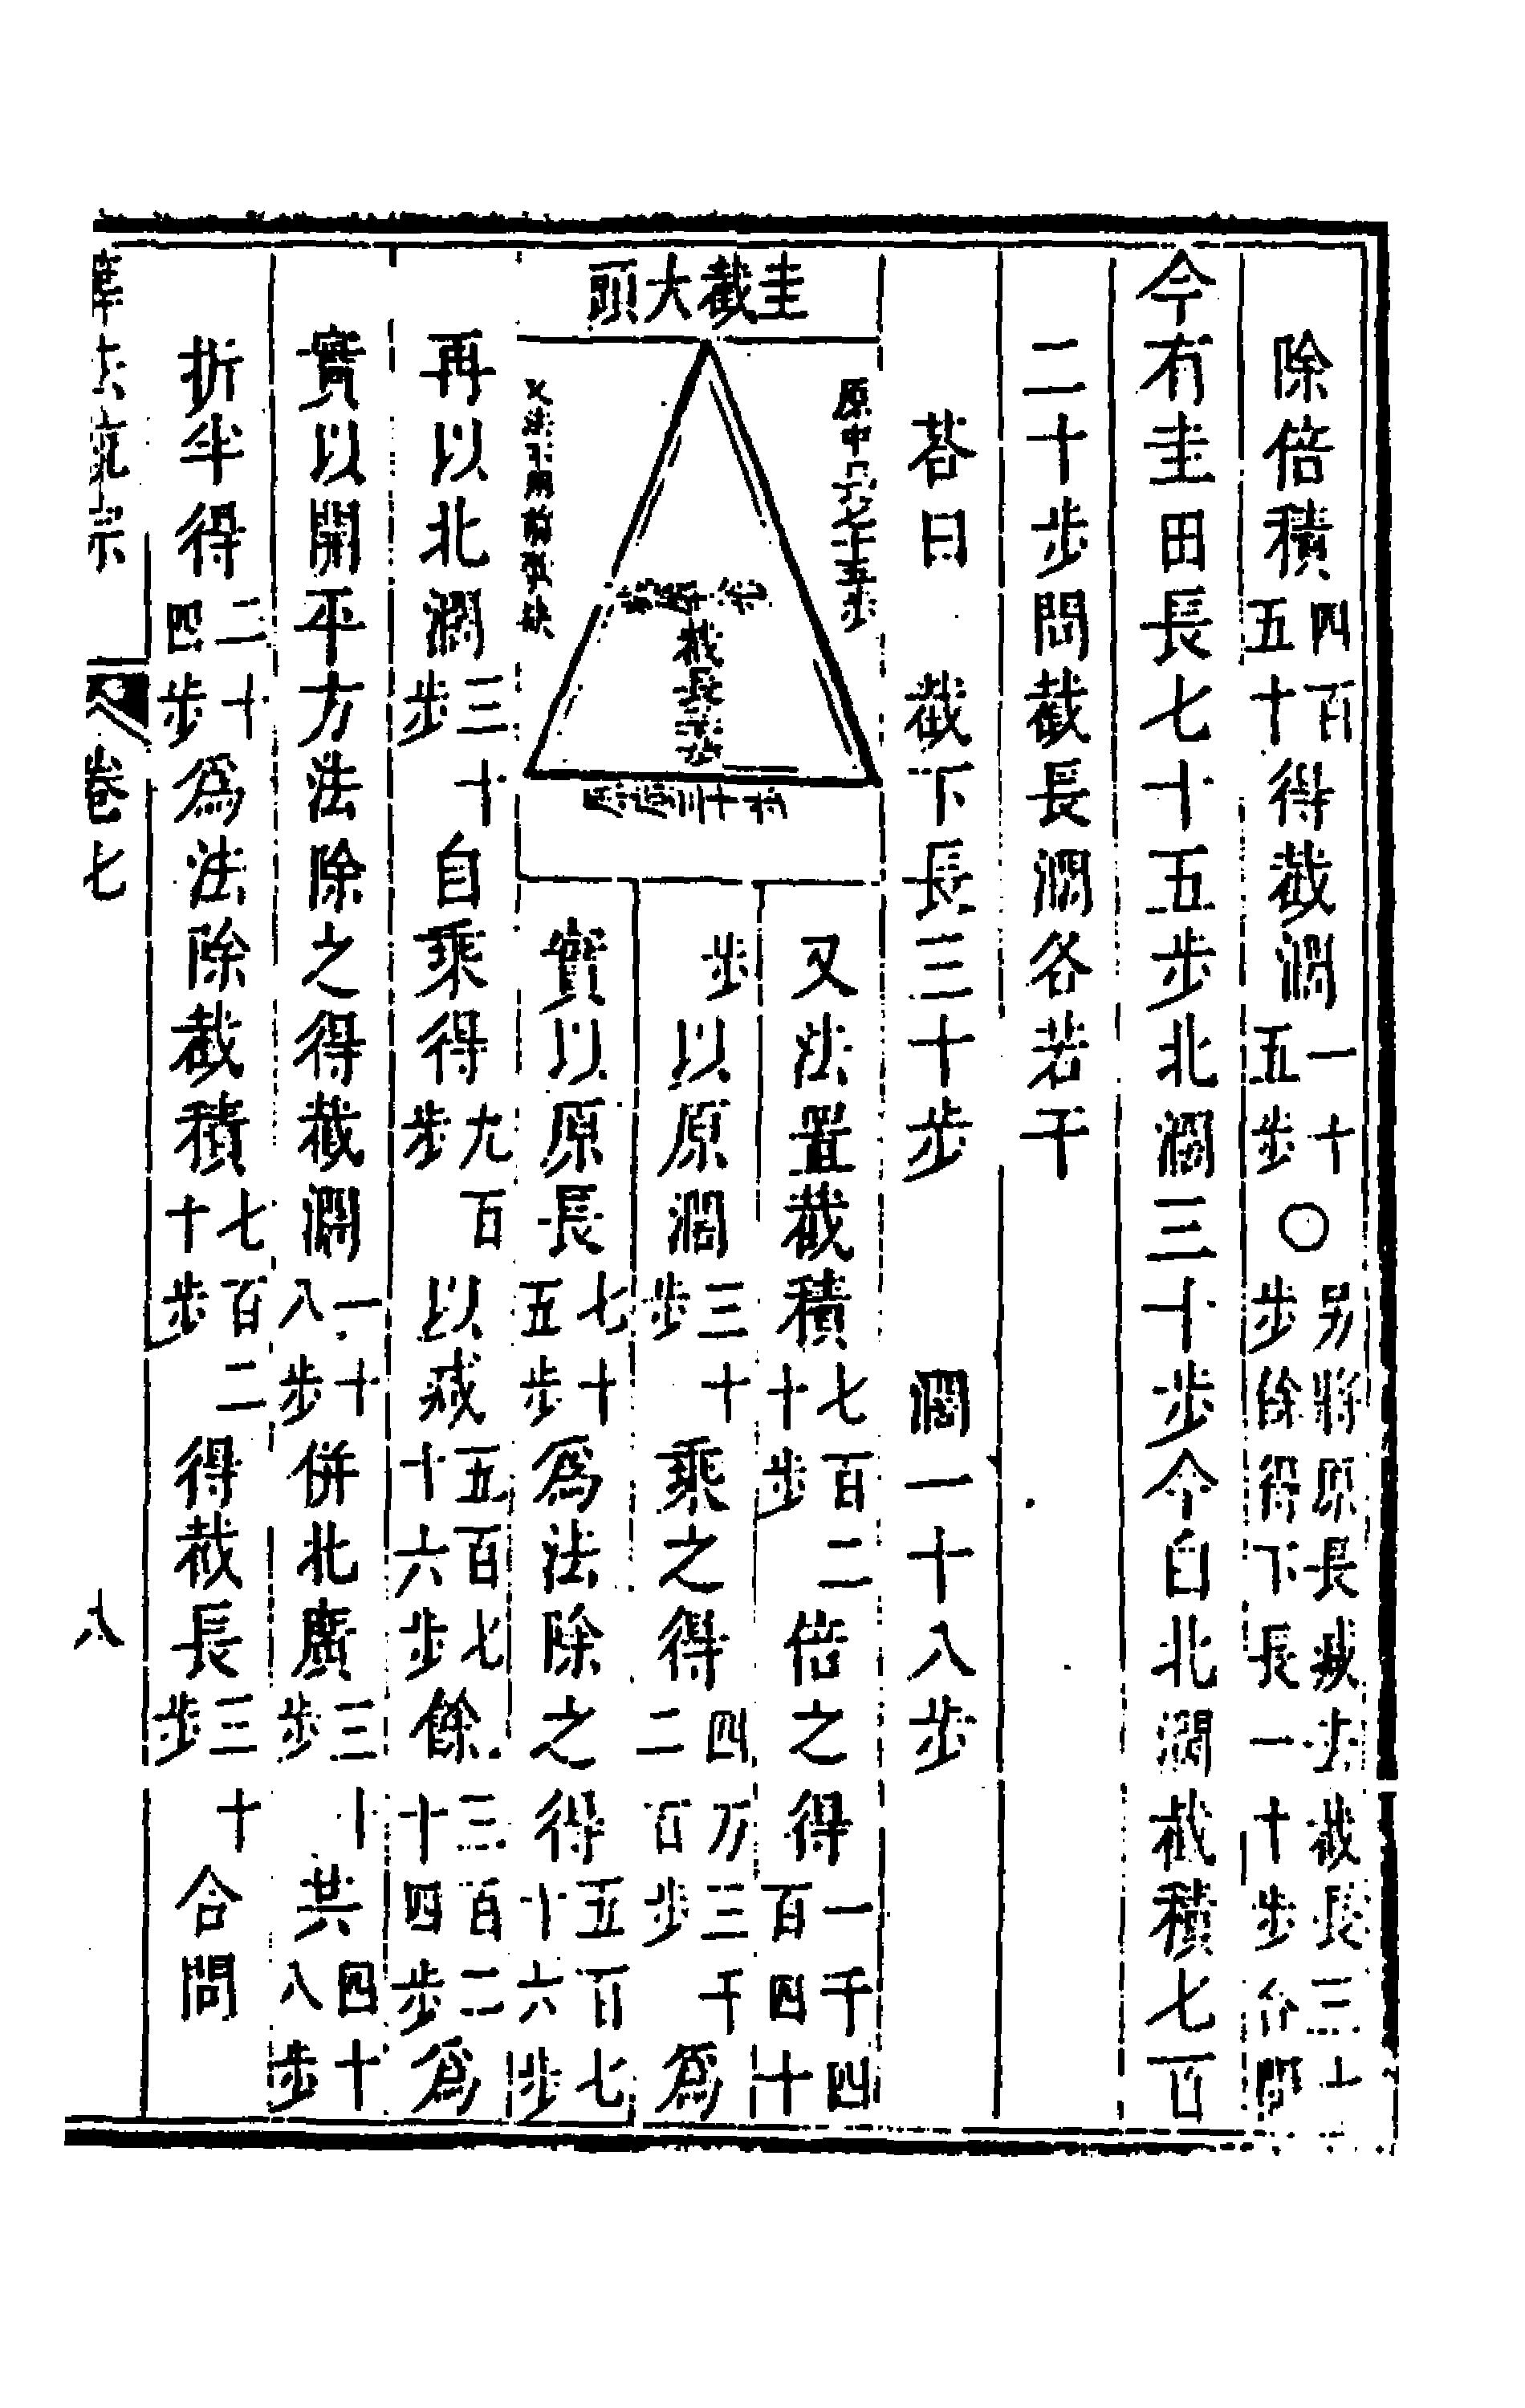 除倍積四百五十得截濶一十五步〇另將原長減去截長三十步餘得下長一十步合問
今有圭田長七十五步北濶三十步今自北濶截積七百
二十步問截長濶各若干
荅曰　截下長三十步　濶一十八步
圭截大頭
原中長七十五步
截長三十步
又法置截積七百二十步倍之得一千四百四十
步以原濶三十步乘之得四万三千二百步爲
實以原長七十五步爲法除之得五百七十六步
再以北濶三十步自乘得九百步以减五百七十六步餘三百二十四步爲
實以開平方法除之得截濶一十八步併北廣三十步共四十八步
折半得二十四步爲法除截積七百二十步得截長三十步合問
卷七
八